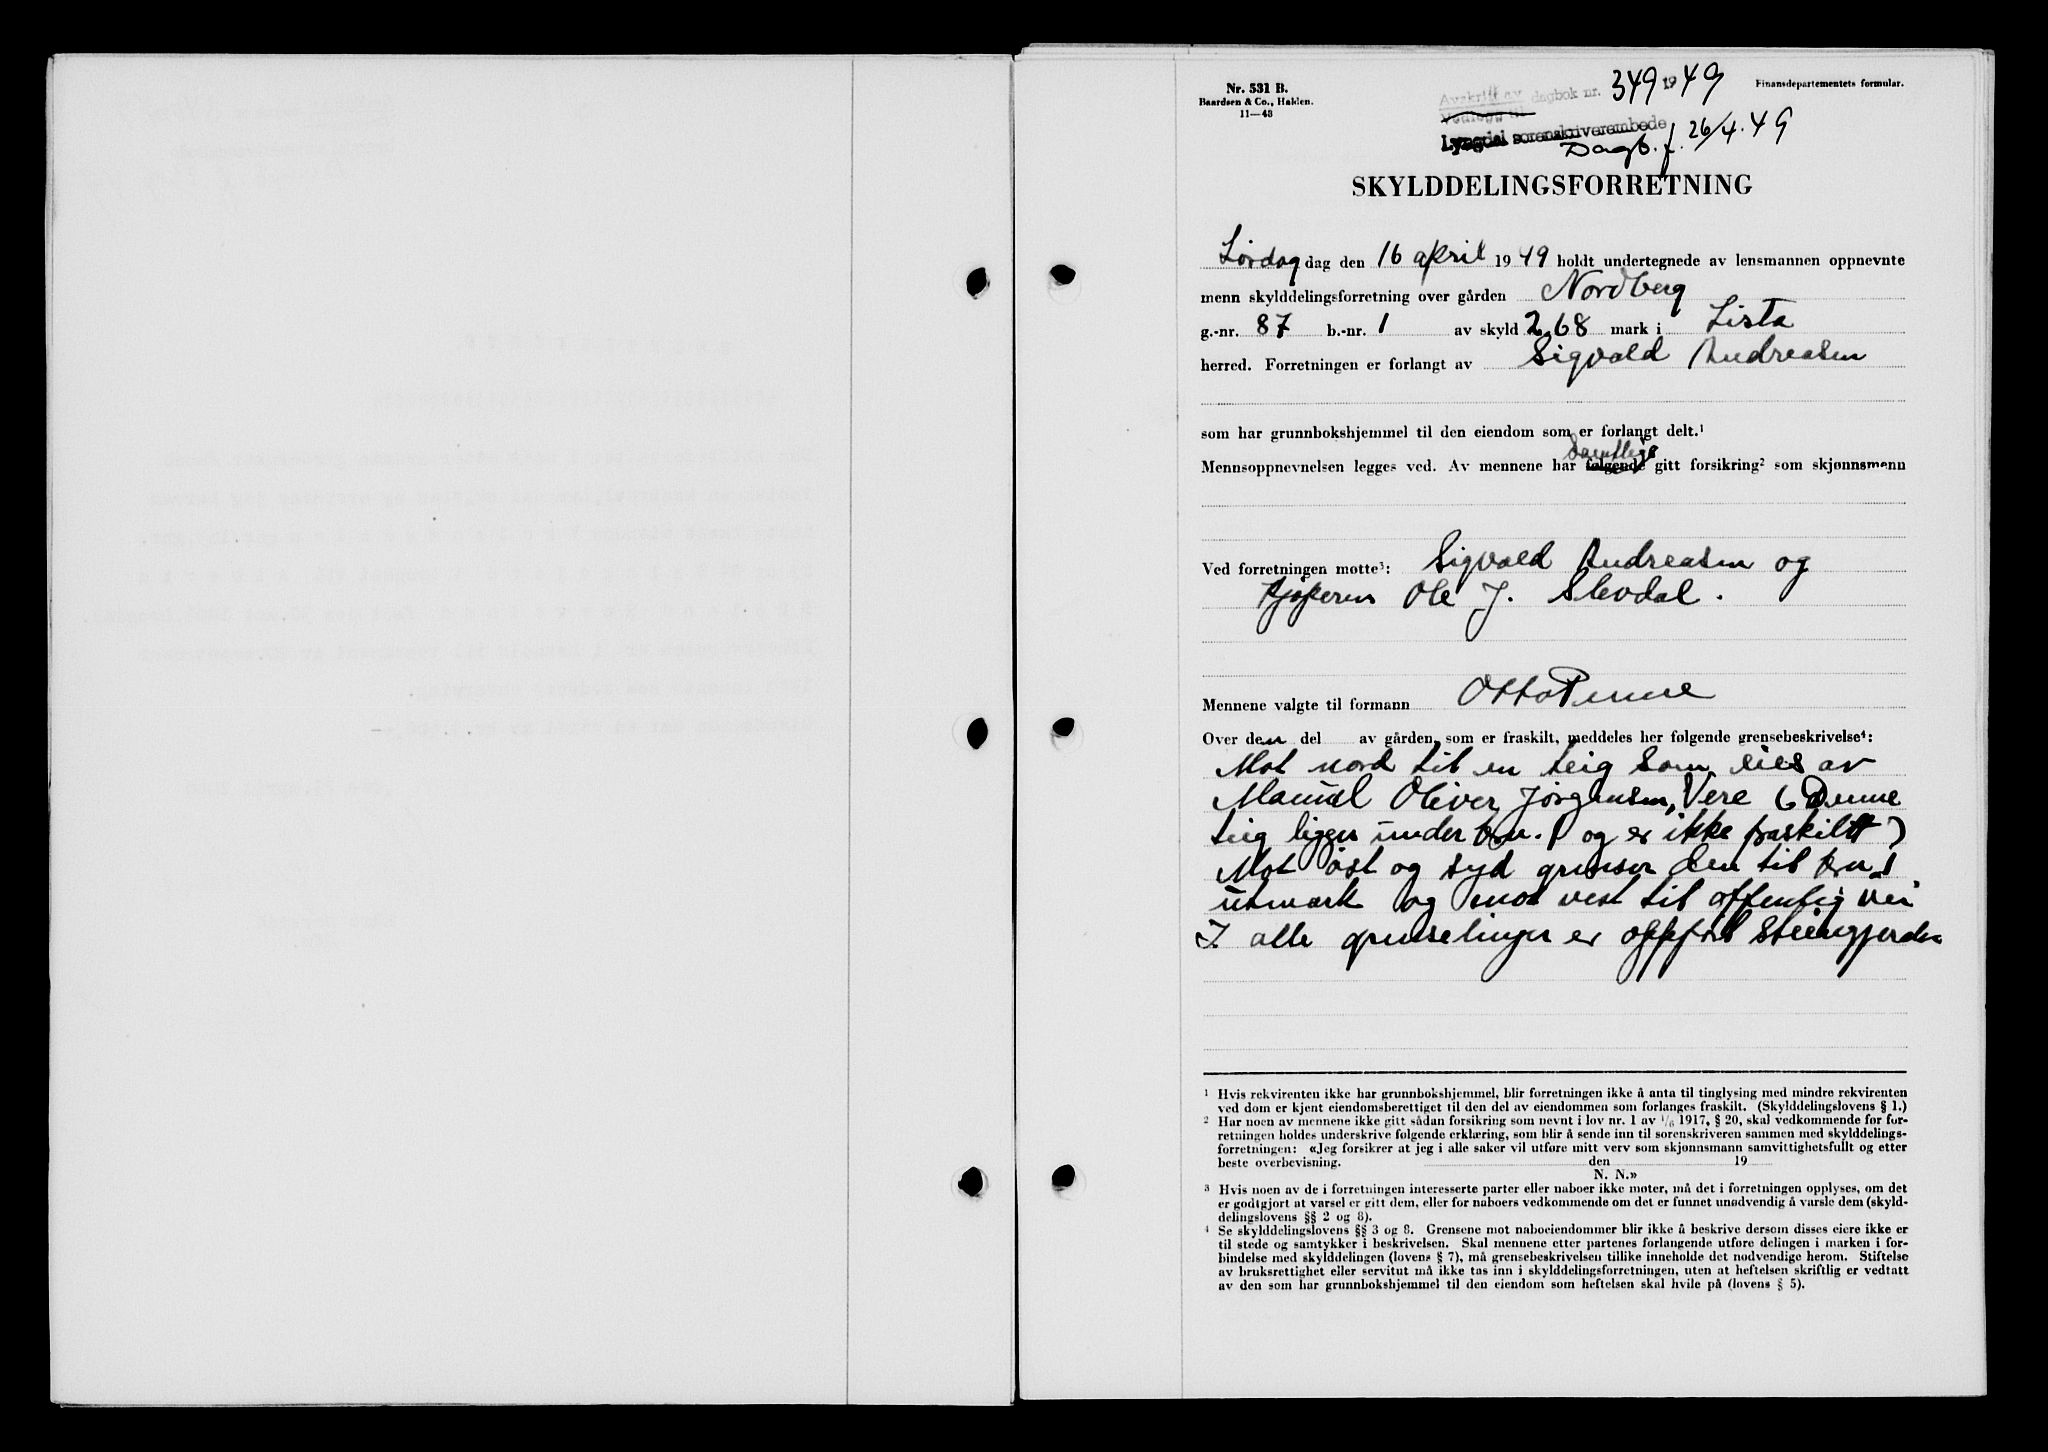 Nr. 531 B.
Baardsen & Co., Halden.
11—48
Avskrift av dagbok nr. 349 1949
Vedlegg til
Lyngdal sorenskriverembede
Dagb. f. 26/4.49
Finansdepartementets formular.
SKYLDDELINGSFORRETNING
Lørdag dag den 16 april 1949 holdt undertegnede av lensmannen oppnevnte
menn skylddelingsforretning over gården Nordberg
g.-nr. 87 b.-nr. 1 av skyld 2,68 mark i Lista
herred. Forretningen er forlangt av Sigvald Andreasen
som har grunnbokshjemmel til den eiendom som er forlangt delt.¹
Mennsoppnevnelsen legges ved. Av mennene har følgende gitt forsikring² som skjønnsmenn
Ved forretningen møtte³: Sigvald Andreasen og
kjøperen Ole J. Slevdal.
Mennene valgte til formann Otto Penne
Over den del av gården, som er fraskilt, meddeles her følgende grensebeskrivelse⁴:
Mot nord til en teig som eies av
Manuel Oliver Jørgensen, Vere (Denne
teig ligger under bn. 1 og er ikke fraskilt)
Mot øst og syd grenser den til bn 1
utmark og mot vest til offentlig vei
I alle grenselinjer er oppført Steingjerder
¹ Hvis rekvirenten ikke har grunnbokshjemmel, blir forretningen ikke å anta til tinglysing med mindre rekvirenten
ved dom er kjent eiendomsberettiget til den del av eiendommen som forlanges fraskilt. (Skylddelingslovens § 1.)
² Har noen av mennene ikke gitt sådan forsikring som nevnt i lov nr. 1 av 1/6 1917, § 20, skal vedkommende før for-
retningen holdes underskrive følgende erklæring, som blir å sende inn til sorenskriveren sammen med skylddelings-
forretningen: «Jeg forsikrer at jeg i alle saker vil utføre mitt verv som skjønnsmann samvittighetsfullt og etter
beste overbevisning. den 19
N. N.»
³ Hvis noen av de i forretningen interesserte parter eller naboer ikke møter, må det i forretningen opplyses, om det
er godtgjort at varsel er gitt dem, eller for naboers vedkommende om det er funnet unødvendig å varsle dem (skyld-
delingslovens §§ 2 og 8).
⁴ Se skylddelingslovens §§ 3 og 8. Grensene mot naboeiendommer blir ikke å beskrive dersom disses eiere ikke er
til stede og samtykker i beskrivelsen. Skal mennene etter partenes forlangende utføre delingen i marken i for-
bindelse med skylddelingen (lovens § 7), må grensebeskrivelsen tillike inneholde det nødvendige herom. Stiftelse
av bruksrettighet eller servitut må ikke tas inn i skylddelingsforretningen, uten at heftelsen skriftlig er vedtatt
av den som har grunnbokshjemmel til den eiendom som heftelsen skal hvile på (lovens § 5).